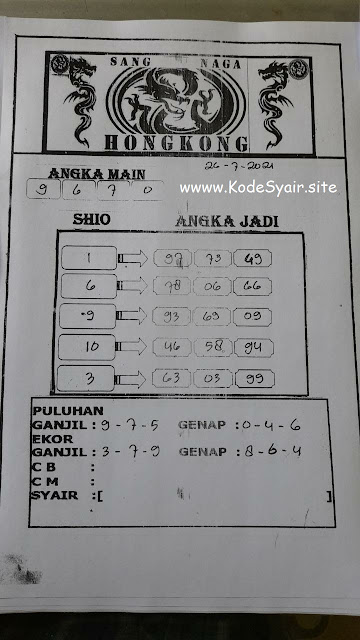 SANG NAGA
HONGKONG
26-7-2021
ANGKA MAIN
www.KodeSyair.site
9 6 7 0
SHIO ANGKA JADI
1 97 73 49
6 78 06 66
9 93 69 09
10 46 58 94
3 63 03 99
PULUHAN
GANJIL : 9-7-5 GENAP : 0-4-6
EKOR
GANJIL : 3-7-9 GENAP : 8-6-4
C B :
C M :
SYAIR :[ ]